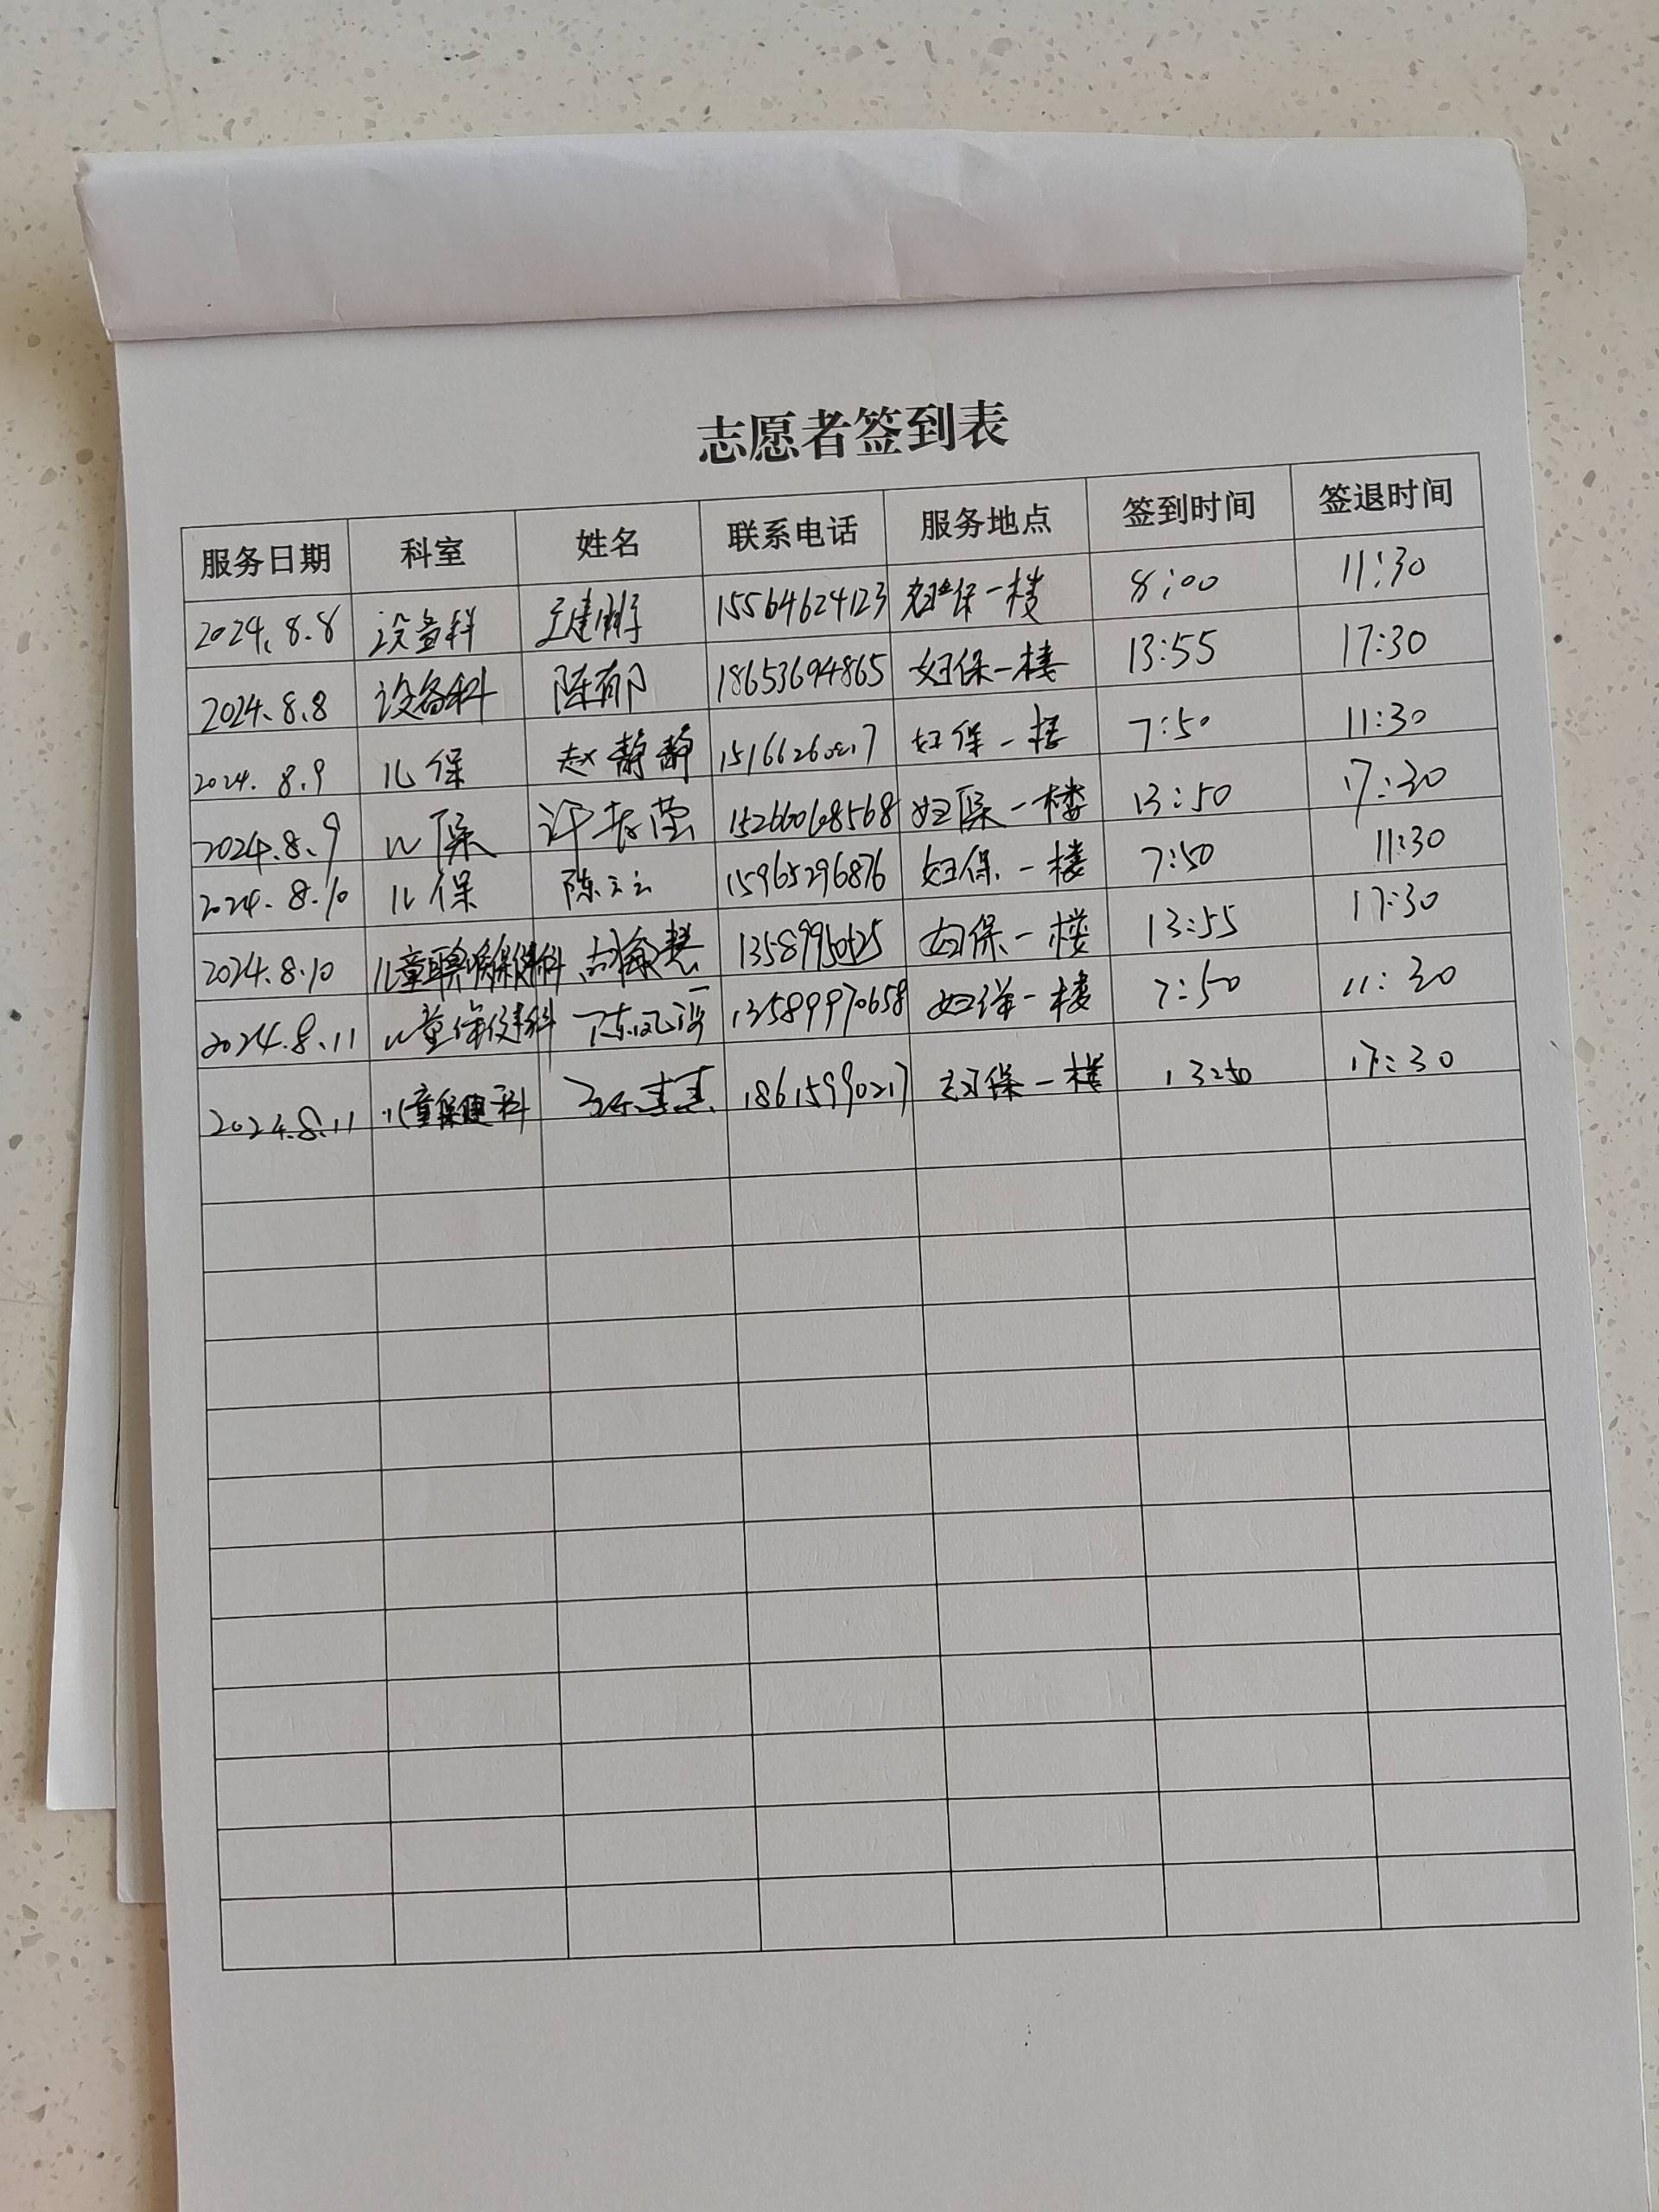 志愿者签到表
服务日期 科室 姓名 联系电话 服务地点 签到时间 签退时间
2024.8.8 设备科 15564624123 妇保一楼 8:00 11:30
2024.8.8 设备科 陈郁 18653694865 妇保一楼 13:55 17:30
2024.8.9 儿保 赵静静 妇保一楼 7:50 11:30
2024.8.9 儿保 许 莹 15266068568 妇保一楼 13:50 17:30
2024.8.10 儿保 陈云云 15965296876 妇保一楼 7:50 11:30
2024.8.10 儿童 保健科 妇保一楼 13:55 17:30
2024.8.11 儿童保健科 陈 13589970658 妇保一楼 7:50 11:30
2024.8.11 儿童保健科 18615990217 妇保一楼 13:50 17:30